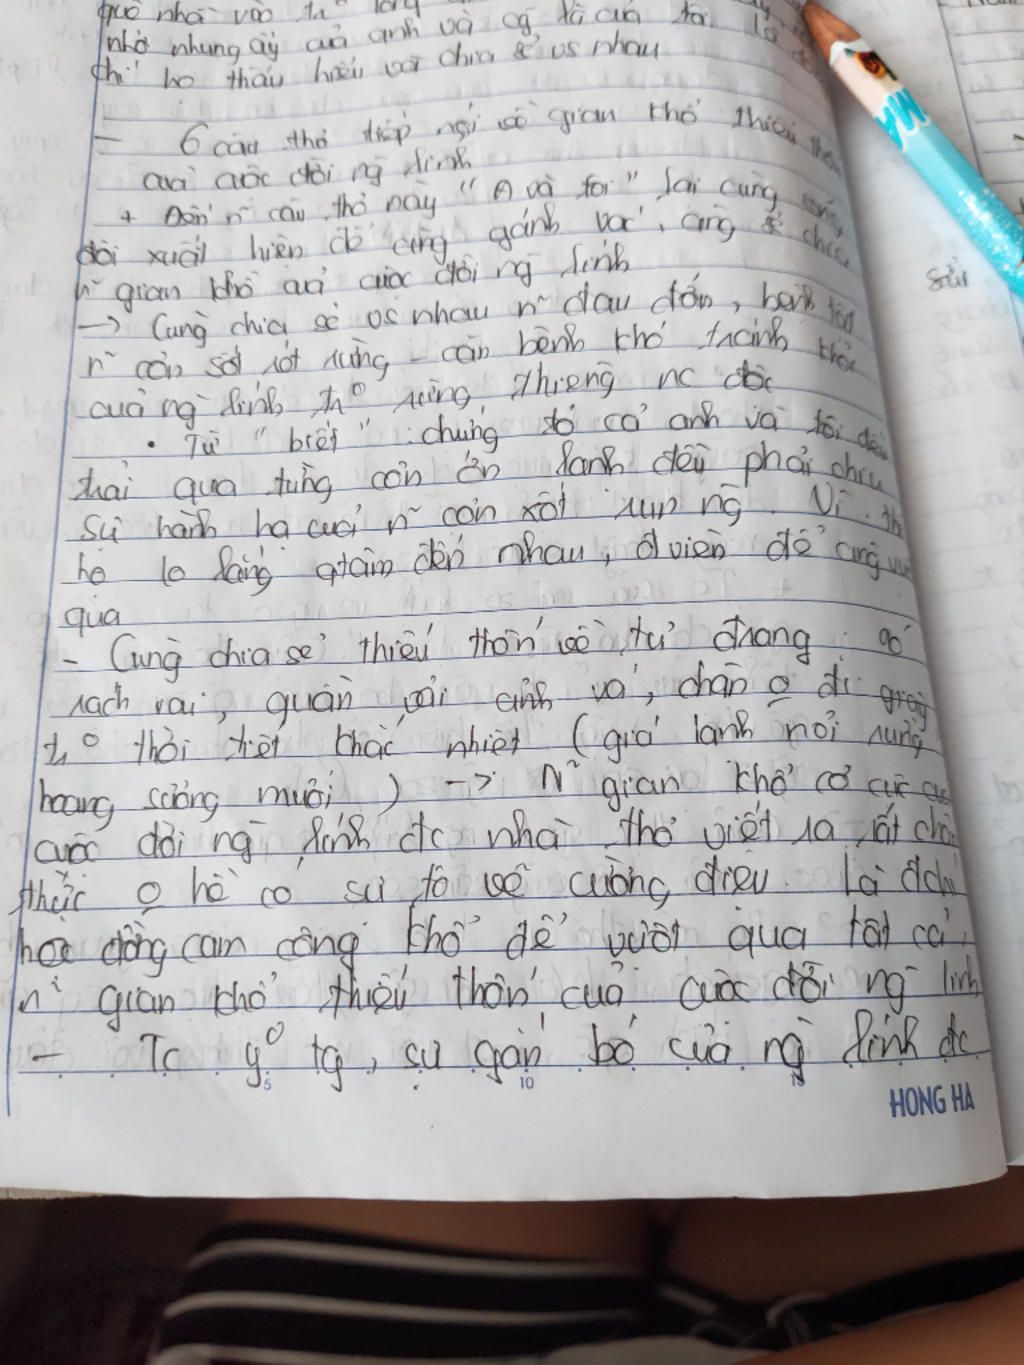 nhớ nhung ấy của anh và cg là của tôi
chỉ họ thấu hiểu và chia sẻ vs nhau
- 6 câu thơ tiếp nói về gian khổ thiếu thốn
của cuộc đời ng lính
+ Đến n~ câu thơ này "A và tôi" lại cùng
đôi xuất hiện để cùng gánh vác, cùng sẻ chia
n~ gian khổ của cuộc đời ng lính
-> Cùng chia sẻ vs nhau n~ đau đớn, bệnh tật
n~ cơn sốt rét rừng - căn bệnh khó tránh khỏi
của ng lính tr° rừng thiêng nc độc
• Từ "biết" : chứng tỏ cả anh và tôi đều
trải qua từng cơn ớn lạnh đều phải chịu
sự hành hạ của n~ cơn xốt run ng. Vì
họ lo lắng qtâm đến nhau, đviên để cùng
qua
- Cùng chia sẻ thiếu thốn về tư trang : áo
rách vai, quần vài mảnh vá, chân o đi giày
tr° thời tiết khắc nhiệt (giá lạnh nơi rừng
hoang sương muối) -> N~ gian khổ cơ cực của
cuộc đời ng lính đc nhà thơ viết ra rất chân
thực o hề có sự tô vẽ cường điệu. Là
học đồng cam cộng khổ để vượt qua tất cả
n~ gian khổ thiếu thốn của cuộc đời ng lính
- Tc y° tg, sự gắn bó của ng lính đc
sửi
5 10 15
HONG HA